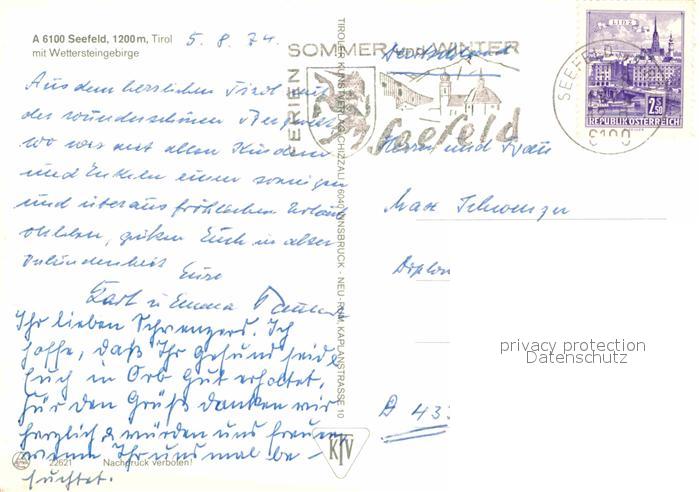 A 6100 Seefeld, 1200 m, Tirol
mit Wettersteingebirge
5. 8. 74.
Aus dem herrlichen Tirol mit
der wunderschönen Bergwelt
wo wir mit allen Kindern
und Enkeln einen sonnigen
und überaus fröhlichen Urlaub
erleben, grüßen Euch in alter
Verbundenheit
Eure
Karl u. Emma
Ihr lieben Schwenzers. Ich
hoffe, daß Ihr Gesund seid &
Euch in Orb gut erholtet,
Für den Gruß danken wir
herzlich & würden uns freuen
wenn Ihr uns mal be-
suchtet.
22621 Nachdruck verboten!
TIROLER KUNSTVERLAG CHIZZALI, 6040 INNSBRUCK - NEU-RUM, KAPLANSTRASSE 10
KTV
FERIEN
SOMMER und WINTER
Seefeld
SEEFELD
6100
LINZ
2.50 S
REPUBLIK ÖSTERREICH
Deutschland
Herrn und Frau
Max Schwenzer
Diplom
D 43
privacy protection
Datenschutz